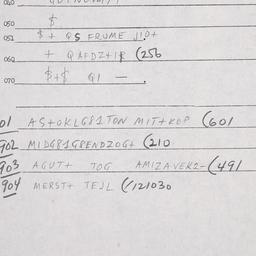 050 $
052 $ + QS FRUME JID+
060 + QAFDZ+IR (256
070 $+$ QI —
01 AS+OKLG81TON MIT+KOP (601
902 MIDG81G8ENDZOG+ (210
903 AGUT+ TOG AMIZAVEK2-(491
904 MERST+ TEJL (/121030